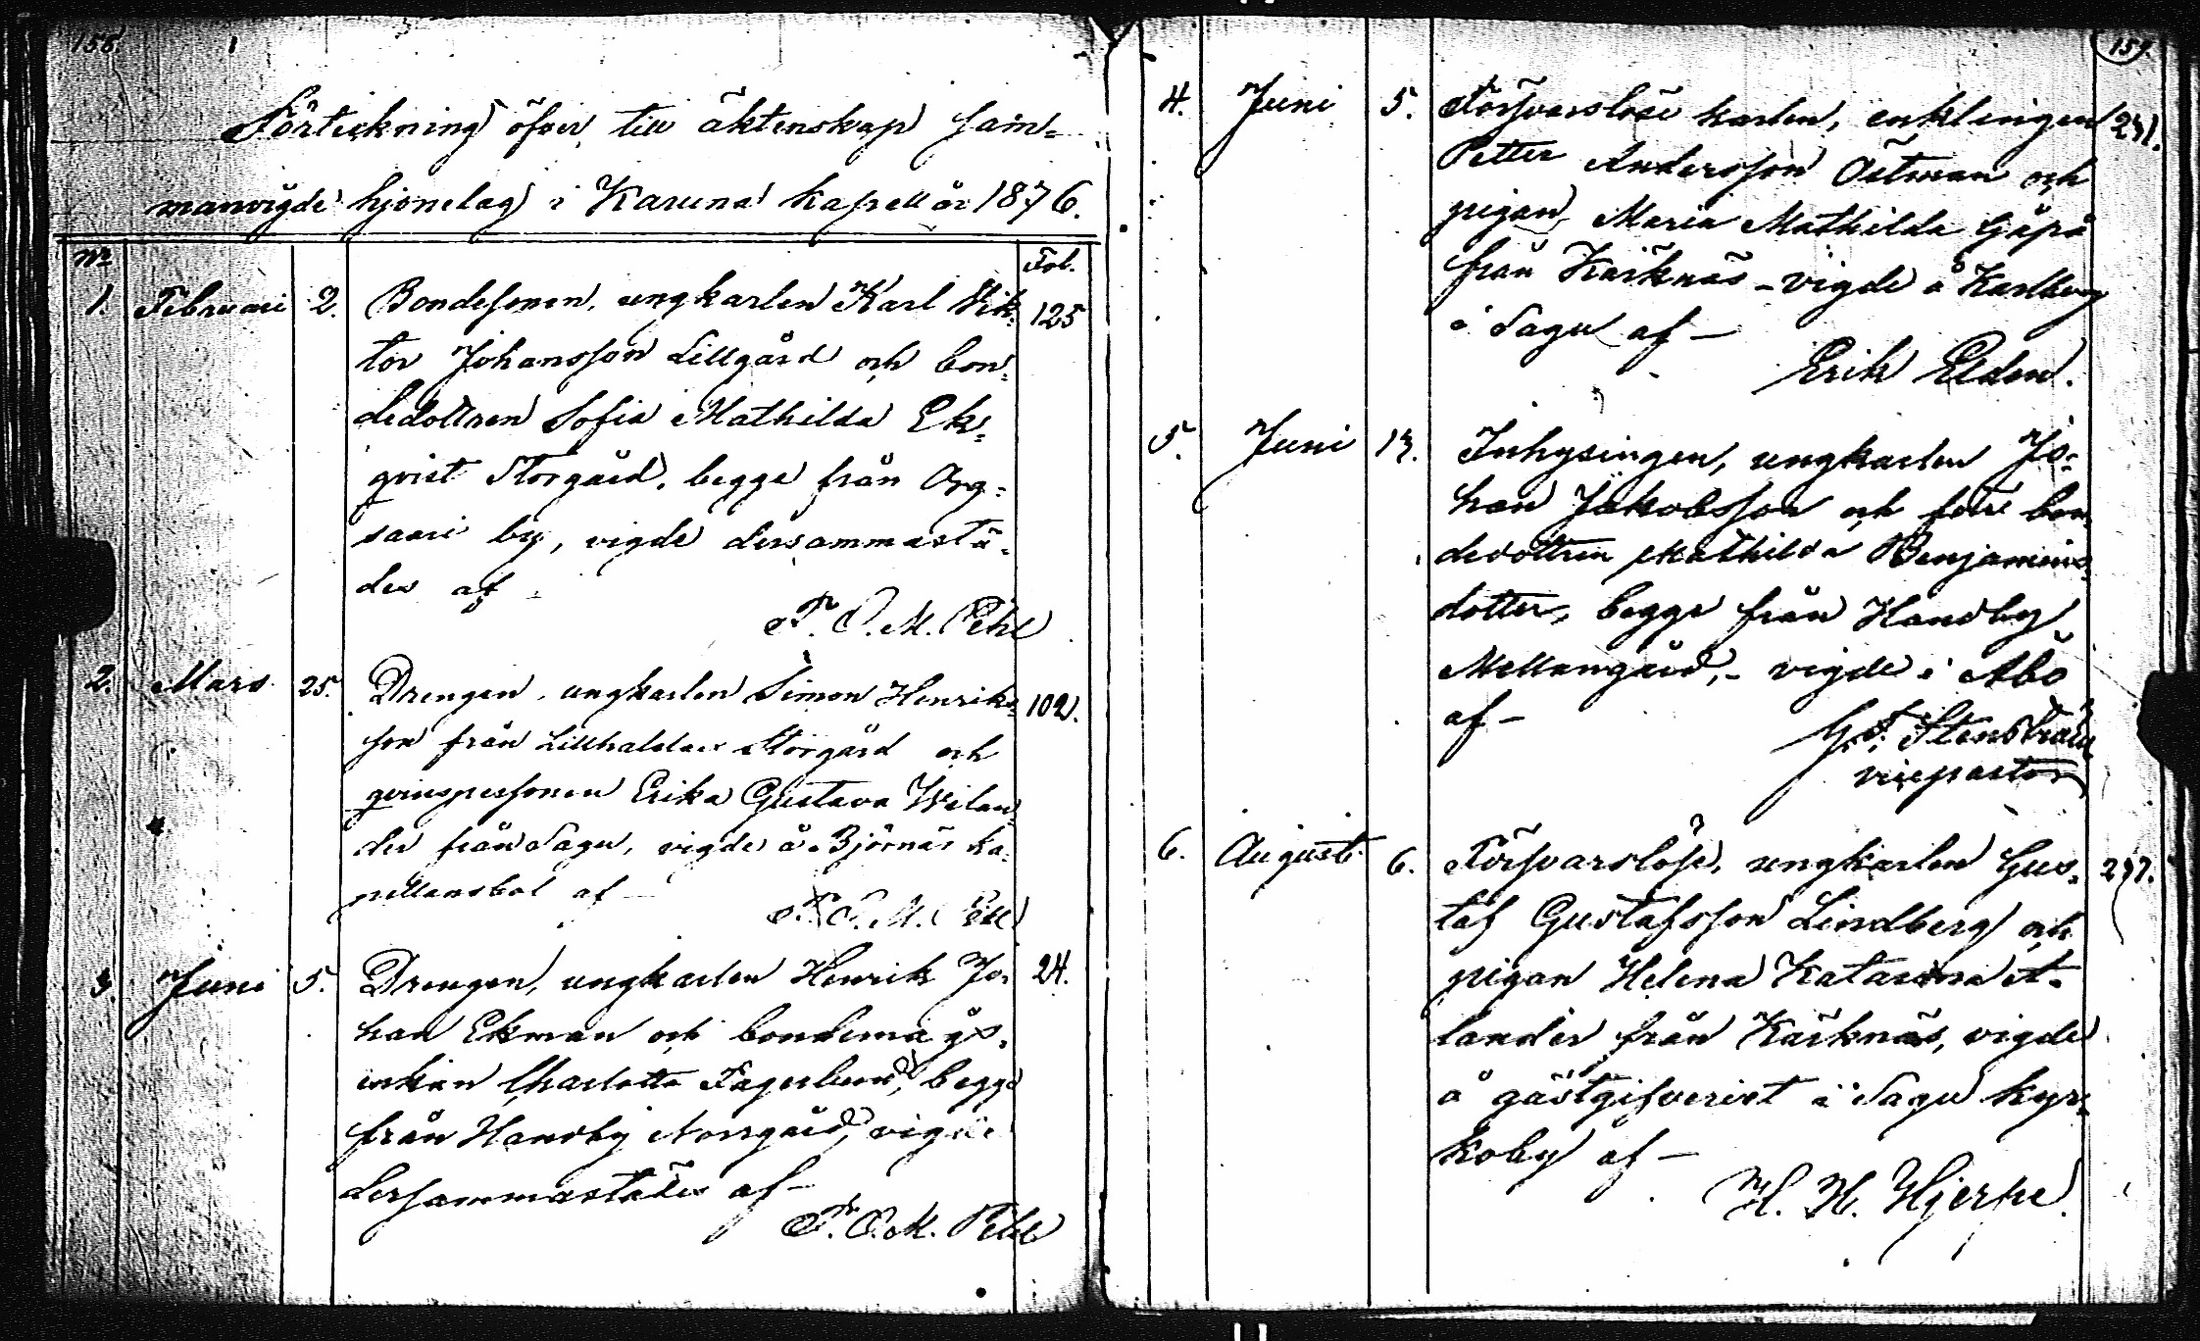 158.
Förteckning öfver till äktenskap sam-
manvigde hjonelag i Karuna kapell år 1876.
No Fol.
1. Februari 2. Bondesonen, ungkarlen Karl Vik- 125
tor Johansson Lillgård och bon-
dedottren Sofia Mathilda Ek-
qvist Storgård, begge från
saari by, vigde dersammastä-
des af
F. O. M. Pihl
2. Mars 25. Drengen, ungkarlen Simon Henriks- 102.
son från Storgård och
qvinspersonen Erika Gustava Welan-
der från Sagu, vigde å Björnäs ka-
pellansbol af —
F. O. M. Pihl
3. Juni 5. Drengen, ungkarlen Henrik Jo- 24.
han Ekman och bondemågs-
enkan Charlotta begge
från Handby Norrgård, vigde
dersammastädes af —
F. O. M. Pihl
159.
4. Juni 5. Försvarslöse karlen, enklingen 291.
Petter Andersson Östman och
pigan Maria Mathilda
från Kärknäs — vigde å Karlberg
i Sagu af —
Erik Elden.
5. Juni 13. Inhysingen, ungkarlen Jo-
han Jakobsson och förre bon-
dedottren Mathilda Benjamins-
dotter, begge från Handby
Mellangård, — vigde i Åbo
af —
G. F. Stenstrand
vicepastor
6. Augusti 6. Försvarslöse, ungkarlen Gus- 297.
taf Gustafsson Lindberg och
pigan Helena Katarina A-
lander från Kärknäs, vigde
å gästgifveriet i Sagu kyr-
koby af —
H. H. Hjerpe.